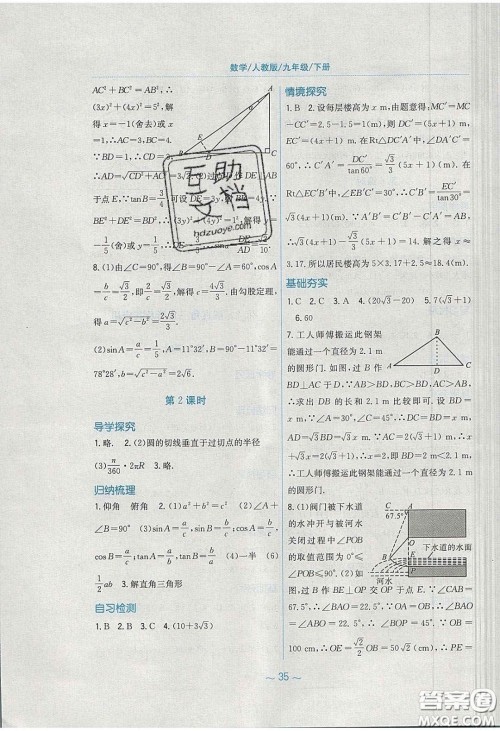 数学/人教版/九年级/下册
AC²+BC²=AB²,∴
(3x)²+(4x)²=5²,解
得x=-1(舍去)或x
=1,∴AC=3,BC=4.
∵BD=1,∴CD=3,
∴AD=√(CD²+AC²)=3√2.
于点E,∵tanB=3/4,
-1/5(舍)或y=1/5,
8.(1)由∠C=90°,得∠B=90°-∠A=60°,cosA
=b/c=√3/2,即2/c=√3/2,解得c=4√3/3.由勾股定理,
得a=√(c²-b²)=2√3/3.
(2)sinA=a/c=1/5,∠A=11°32′,∠B=90°-11°32′=
78°28′,b=√(c²-a²)=2√6.
第2课时
导学探究
1.略. 2.(2)圆的切线垂直于过切点的半径
(3)n/360·2πR 3.略.
归纳梳理
1.仰角 俯角 2.(1)a²+b²=c² (2)∠A+
∠B=90° (3)sinA=a/c,sinB=b/c,cosA=b/c,
cosB=a/c;tanA=a/b,tanB=b/a (4)一半 (6)
1/2ab 3.解直角三角形
自习检测
1.B 2.B 3.C 4.(10+3√3)
情境探究
1.B 2.设每层楼高为x m,由题意得:MC′=MC
-CC′=2.5-1.5=1(m),则DC′=(5x+1) m,
EC′=(4x+1) m.在Rt△DC′A′中,∠DA′C′=
60°,∴C′A′=DC′/tan60°=√3/3(5x+1)(m).在
Rt△EC′B′中,∠EB′C′=30°,∴C′B′=EC′/tan30°=
√3(4x+1)(m).∵A′B′=C′B′-C′A′=AB,
∴√3(4x+1)-√3/3(5x+1)=14.解之得x≈
3.17.所以居民楼高为5×3.17+2.5≈18.4(m).
基础夯实
1.C 2.C 3.A 4.(20√3-20) 5.7(√3+1)
6.60
7.工人师傅搬运此钢架
能通过一个直径为2.1 m
的圆形门.如图,过B作
BD⊥AC于D.∵AB>BD,BC>BD,AC>AB,
∴求出DB长和2.1 m比较即可.设BD=x m.
∵∠A=30°,∠C=45°,∴DC=BD=x m,AD=
√3BD=√3x m.∵AC=2(√3+1) m,∴x+
√3x=2(√3+1).∴x=2,即BD=2 m<
2.1 m,∴工人师傅搬运此钢架能通过一个直径为2.1 m
的圆形门.
8.(1)阀门被下水道
的水冲开与被河水
关闭过程中∠POB
的取值范围为0°≤
∠POB≤90°.(2)如
图,过B作BE⊥OP交OP于点E.∵∠CAB=
67.5°,∴∠BAO=22.5°.∵OA=OB,∴∠BAO
=∠ABO=22.5°.∴∠BOP=45°.∵OB=
100 cm,∴OE=√2/2OB=50√2 cm,∴PE=
A
B
D
C
A
B
D
C
67.5°
下水道的水面
河水
互助
文档
hdzuoye.com
~35~
答案圈
MXQE.COM